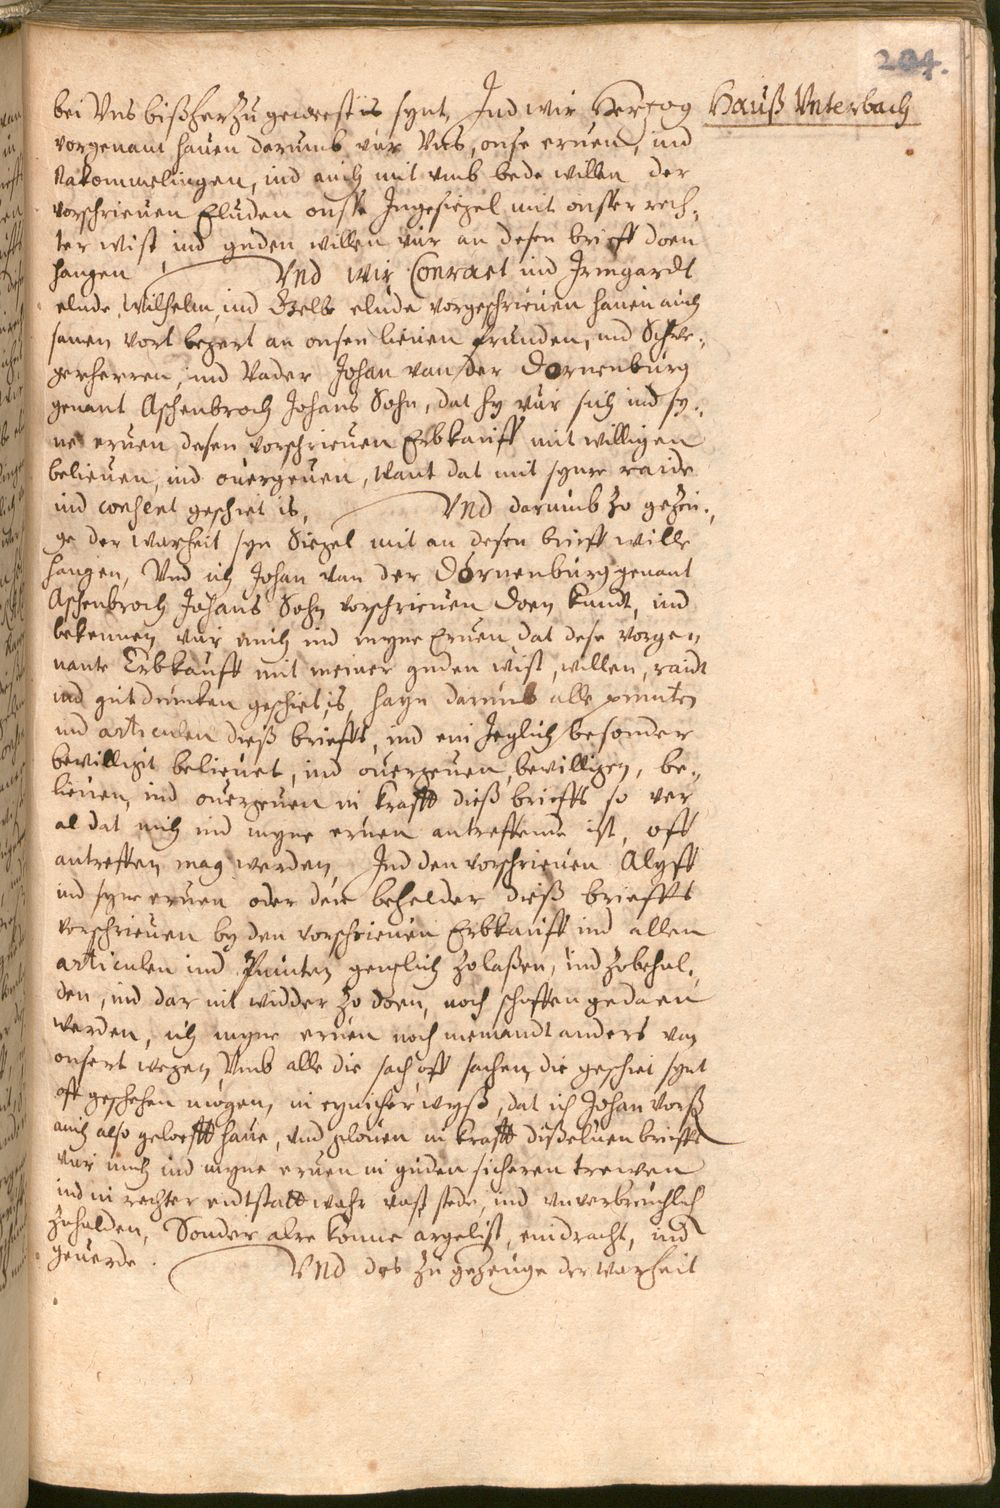 204.
Hauß Vnterbach
bei Vns bißherzu gewest is synt, Ind wir Hertzog
vorgenant hauen darumb vur Vns, onse eruen, ind
Nakommelingen, ind auch mit vmb bede willen der
vorschrieuen Eluden onsse Ingesiegel mit onsser rech-
ter wist ind guden willen vur an desen brieff doen
hangen Vnd wir Conraet ind Irmgardt
elude, Wilhelm, ind Belb elude vorgeschrieuen hauen auch
samen vort begert an onsen lieuen frunden, ind Schwe-
gerherren, ind Vader Johan van der Dornenburg
genant Aschenbroch Johans Sohn, dat hy vur sich ind sy-
ne eruen desen vorschrieuen Erbkauff mit willigen
belieuen, ind ouergeuen, want dat mit synre raide
ind consent geschiet is, Vnd darumb zo gezeu-
ge der warheit syn Siegel mit an desen brieff wille
hangen, Vnd ich Johan van der Dornenburg genant
Aschenbroch Johans Sohn vorschrieuen doen kundt, ind
bekennen vur mich ind myne Eruen dat dese vorge-
nante Erbkaufft mit meiner guden wist, willen, raidt
ind gutdunken geschiet is, hayn darumb alle puncten
ind articulen dieß brieffs, ind ein Jeglich besonder
bewilligt belieuet, ind ouergeuen, bewilligen, be-
lieuen, ind ouergeuen in krafft dieß brieffs so ver
al dat mich ind myne eruen antreffende ist, off
antreffen mag werden, Ind den vorschrieuen Alyff
ind syne eruen oder den behelder dieß briefffs
vorschrieuen by den vorschrieuen Erbkauff ind allen
articulen ind Puncten genslich zolaßen, ind zobehal-
den, ind dar nit widder zo doen, noch schaffen gedaen
werden, ich myne eruen noch niemandt anders van
onsert wegen, Vmb alle die sach off sachen, die geschiet synt
off geschehen mogen, in eynicher wyß, dat ich Johan vorß
auch also geloefft haue, vnd glouen in krafft dißeluen brieffs
vur mich ind myne eruen in guden sicheren trewen
ind in rechter endtstatt wahr vast stede, ind vnverbruchlich
zuhalden, Sonder alre konne argelist, eindracht, ind
geuerde. Vnd des zu gezeuge der warheit